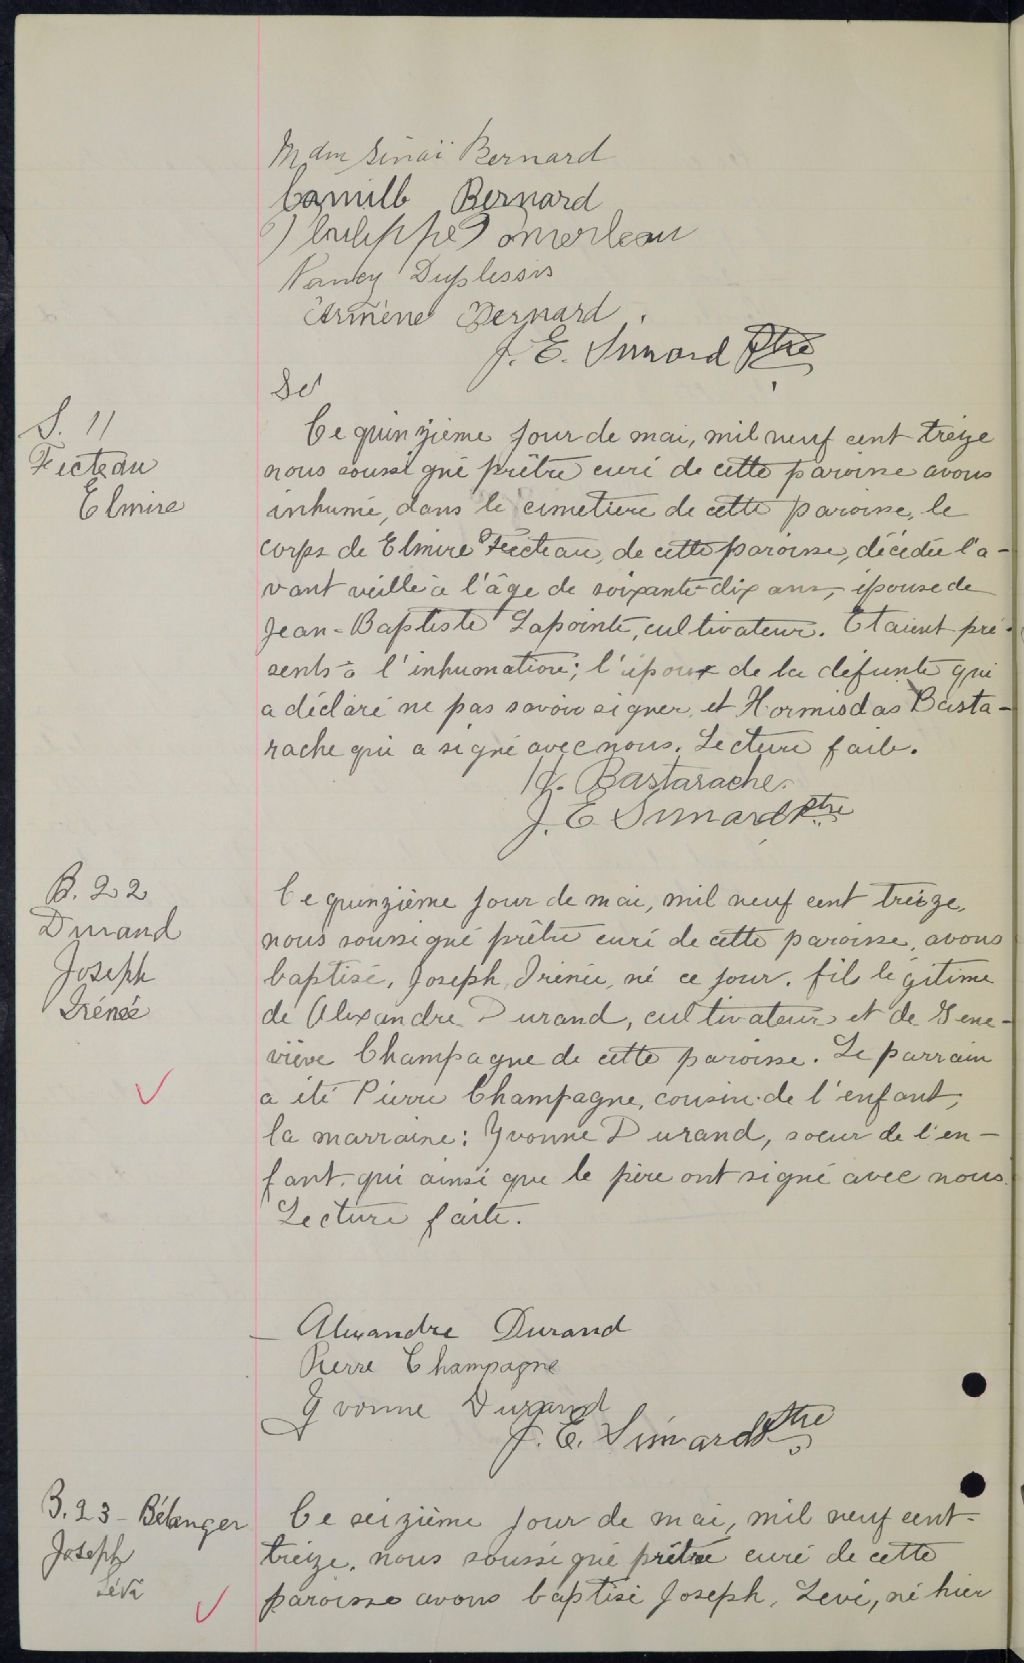 Mdm Sinaï Bernard
Camill Bernard
Philippe Pomerleau
Nancy Duplessis
Armène Bernard.
J. E. Simard Ptre
S. 11
Fecteau
Elmire
Ce quinzième jour de mai, mil neuf cent treize
nous soussigné prêtre curé de cette paroisse avons
inhumé, dans le cimetière de cette paroisse, le
corps de Elmire Fecteau, de cette paroisse, décédée l'a-
vant veille à l'âge de soixante-dix ans, épouse de
Jean-Baptiste Lapointe, cultivateur. Etaient pré-
sents à l'inhumation; l'époux de la défunte qui
a déclaré ne pas savoir signer, et Hormisdas Basta-
rache qui a signé avec nous. Lecture faite.
H. Bastarache.
J. E Simard Ptre
B. 22
Durand
Joseph
Irénée
Ce quinzième jour de mai, mil neuf cent treize,
nous soussigné prêtre curé de cette paroisse, avons
baptisé, Joseph, Irénée, né ce jour. fils légitime
de Alexandre Durand, cultivateur et de Gene-
viève Champagne de cette paroisse. Le parrain
a été Pierre Champagne, cousin de l'enfant,
la marraine: Yvonne Durand, soeur de l'en-
fant. qui ainsi que le père ont signé avec nous.
Lecture faite.
Alexandre Durand
Pierre Champagne
Yvonne Durand
J. E. Simard Ptre
B. 23 - Bélanger
Joseph
Lévi
Ce seizième jour de mai, mil neuf cent-
treize, nous soussigné prêtre curé de cette
paroisse avons baptisé Joseph, Levi, né hier